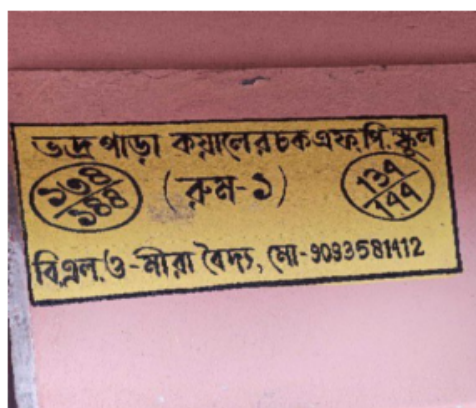 ভদ্র পাড়া কয়ালের চক এফ.পি. স্কুল
১৩৪/১৪৪ (রুম-১) 134/144
বি.এল.ও - মীরা বৈদ্য, মো-9093581412